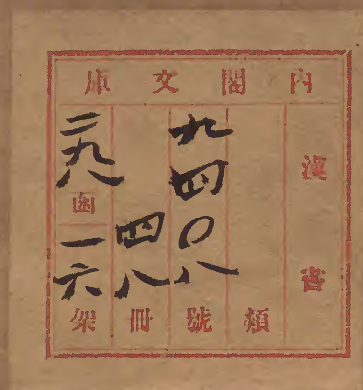 內閣文庫
漢書
類
九四〇八號
四八冊
二九八函
一六架